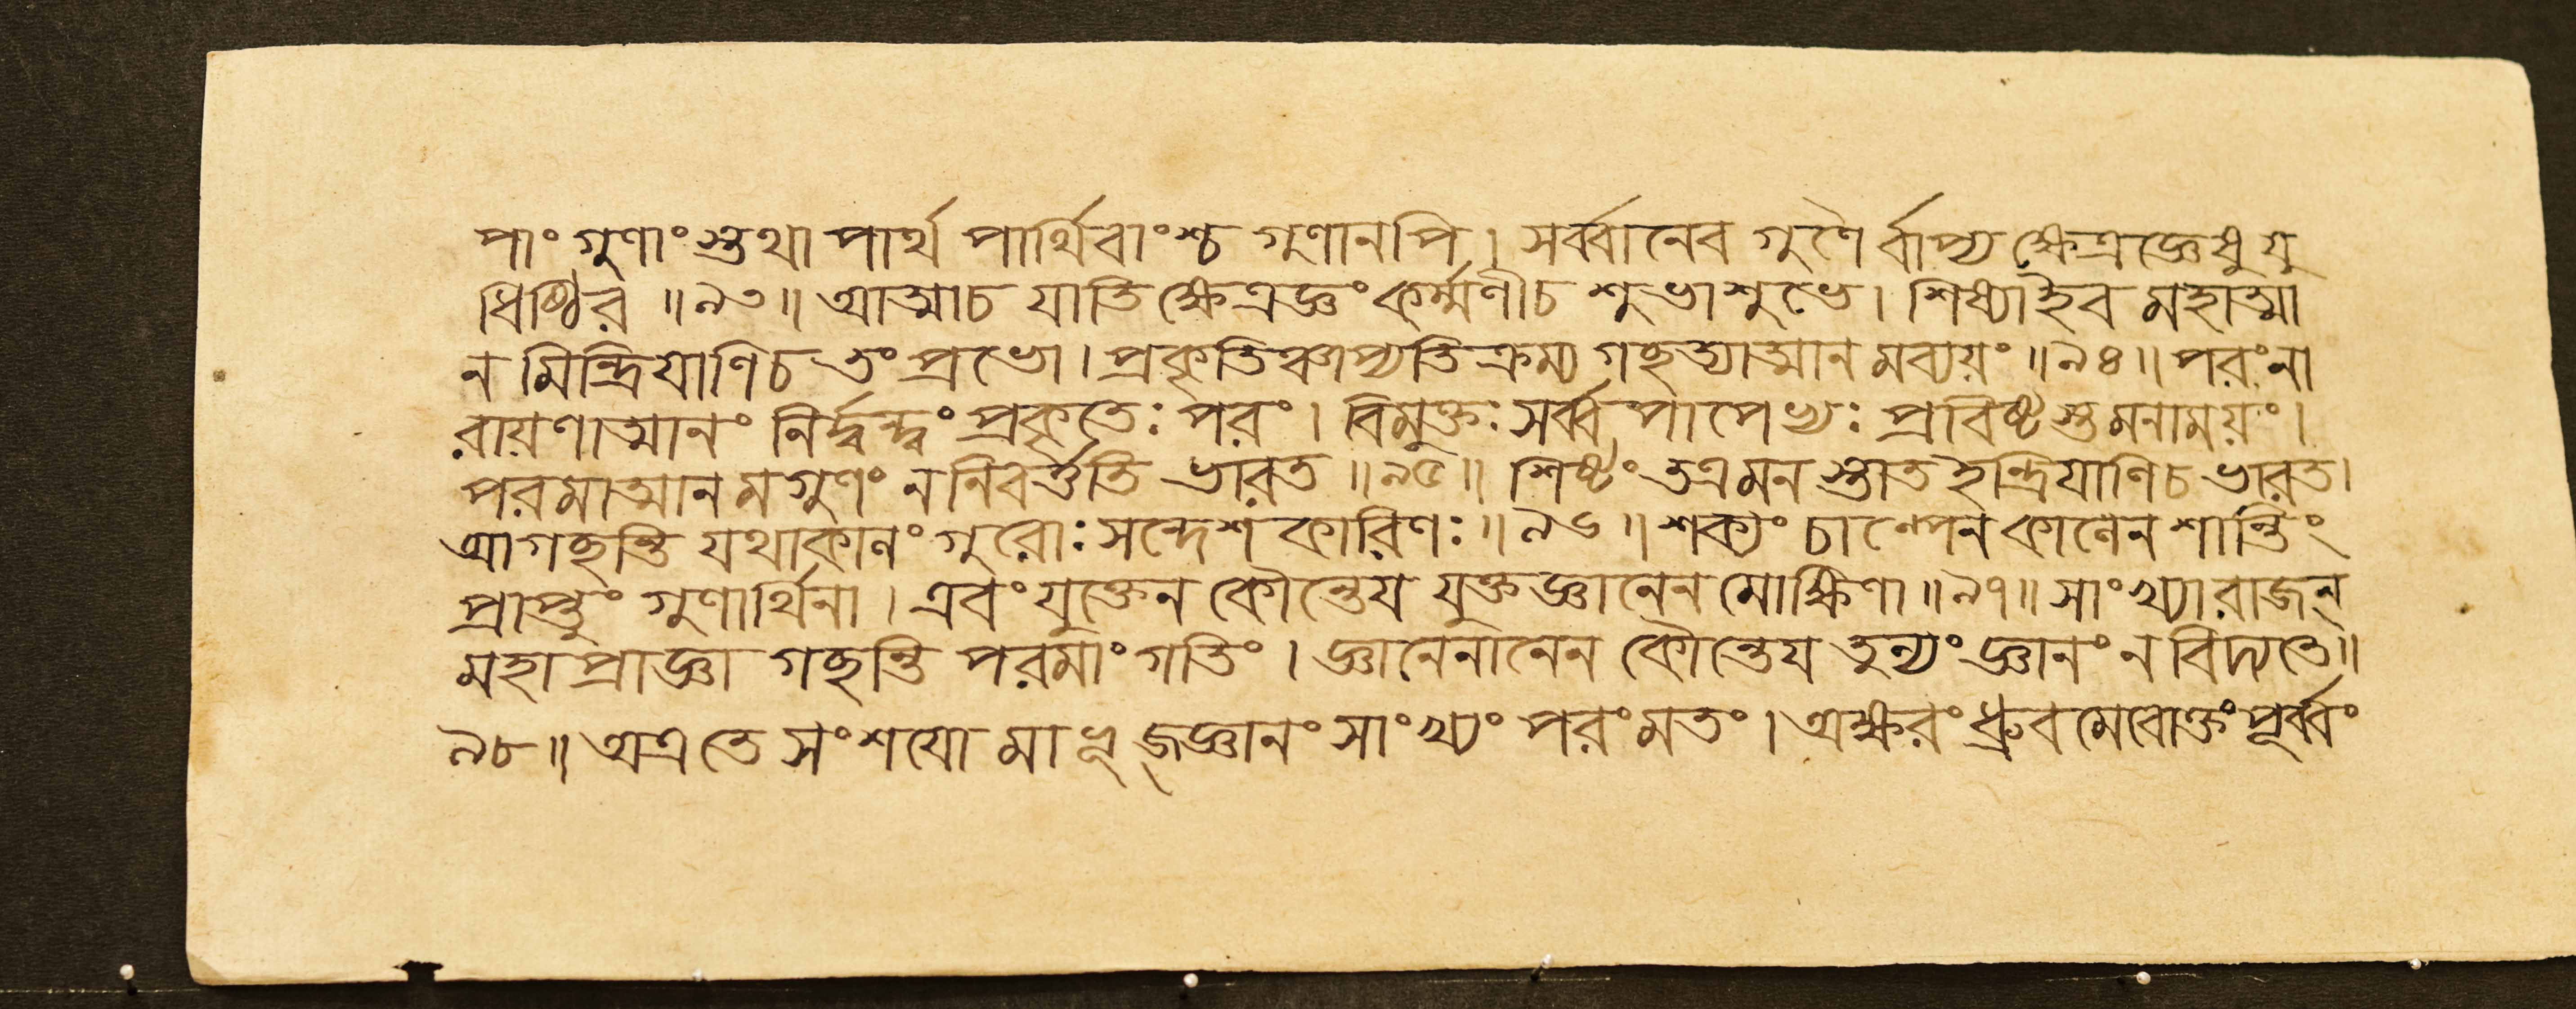 পাং গুণাংস্তথা পার্থ পার্থিবাংশ্চ গুণানপি। সর্ব্বানেব গুণৈর্ব্যাপ্য ক্ষেত্রজ্ঞেষু যু
ধিষ্ঠির ॥৯৩॥ আত্মাচ যাতি ক্ষেত্রজ্ঞং কর্ম্মণীচ শুভাশুভে। শিষ্যাইব মহাত্মা
ন মিন্দ্রিযাণিচ তং প্রভো। প্রকৃতিঞ্চাপ্যতিক্রম্য গচ্ছত্যাত্মান মব্যয়ং ॥৯৪॥ পরংনা
রায়ণাত্মানং নির্দ্বন্দ্বং প্রকৃতেঃ পরং। বিমুক্তঃ সর্ব্বপাপেভ্যঃ প্রবিষ্টস্তমনাময়ং।
পরমাত্মান মগুণং ন নিবর্ত্ততি ভারত ॥৯৫॥ শিষ্টং তত্রমনস্তাত ইন্দ্রিযাণিচ ভারত।
আগচ্ছন্তি যথাকালং গুরোঃ সন্দেশকারিণঃ ॥৯৬॥ শক্যং চাল্পেন কালেন শান্তিং
প্রাপ্তুং গুণার্থিনা। এবং যুক্তেন কৌন্তেয যুক্তজ্ঞানেন মোক্ষিণা ॥৯৭॥ সাংখ্যা রাজন্
মহাপ্রাজ্ঞা গচ্ছন্তি পরমাং গতিং। জ্ঞানেনানেন কৌন্তেয তুল্যং জ্ঞানং ন বিদ্যতে॥
৯৮॥ অত্র তে সংশযো মা ভূজ্জ্ঞানং সাংখ্যং পরং মতং। অক্ষরং ধ্রুবমেবোক্তং পূর্ব্বং